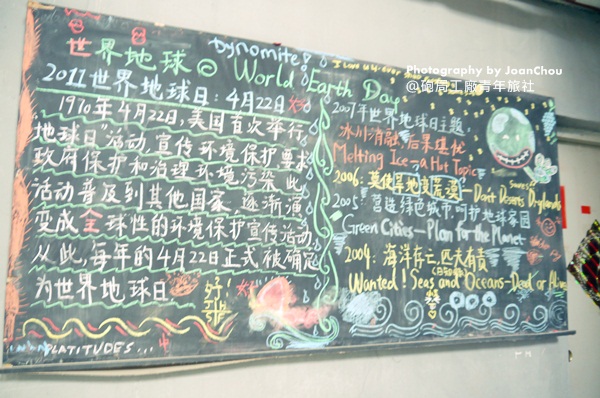 Dynomite!
世界地球日 World Earth Day
2011世界地球日 4月22日
1970年4月22日,美国首次举行“
地球日”活动,宣传环境保护,要求
政府保护和治理环境污染.此
活动普及到其他国家.逐渐演
变成全球性的环境保护宣传活动
从此,每年的4月22日正式被确定
为世界地球日
好!
PLATITUDES...
I Love
Photography by JoanChou
@砲局工廠青年旅社
2007年世界地球日主题:
冰川消融,后果堪忧
Melting Ice—a Hot Topic
2006: 莫使旱地变荒漠—Don't Deserts Drylands
2005: 营造绿色城市,呵护地球家园
Green Cities—Plan for the Planet
2004: 海洋存亡,匹夫有责
Wanted! Seas and Oceans—Dead or Alive